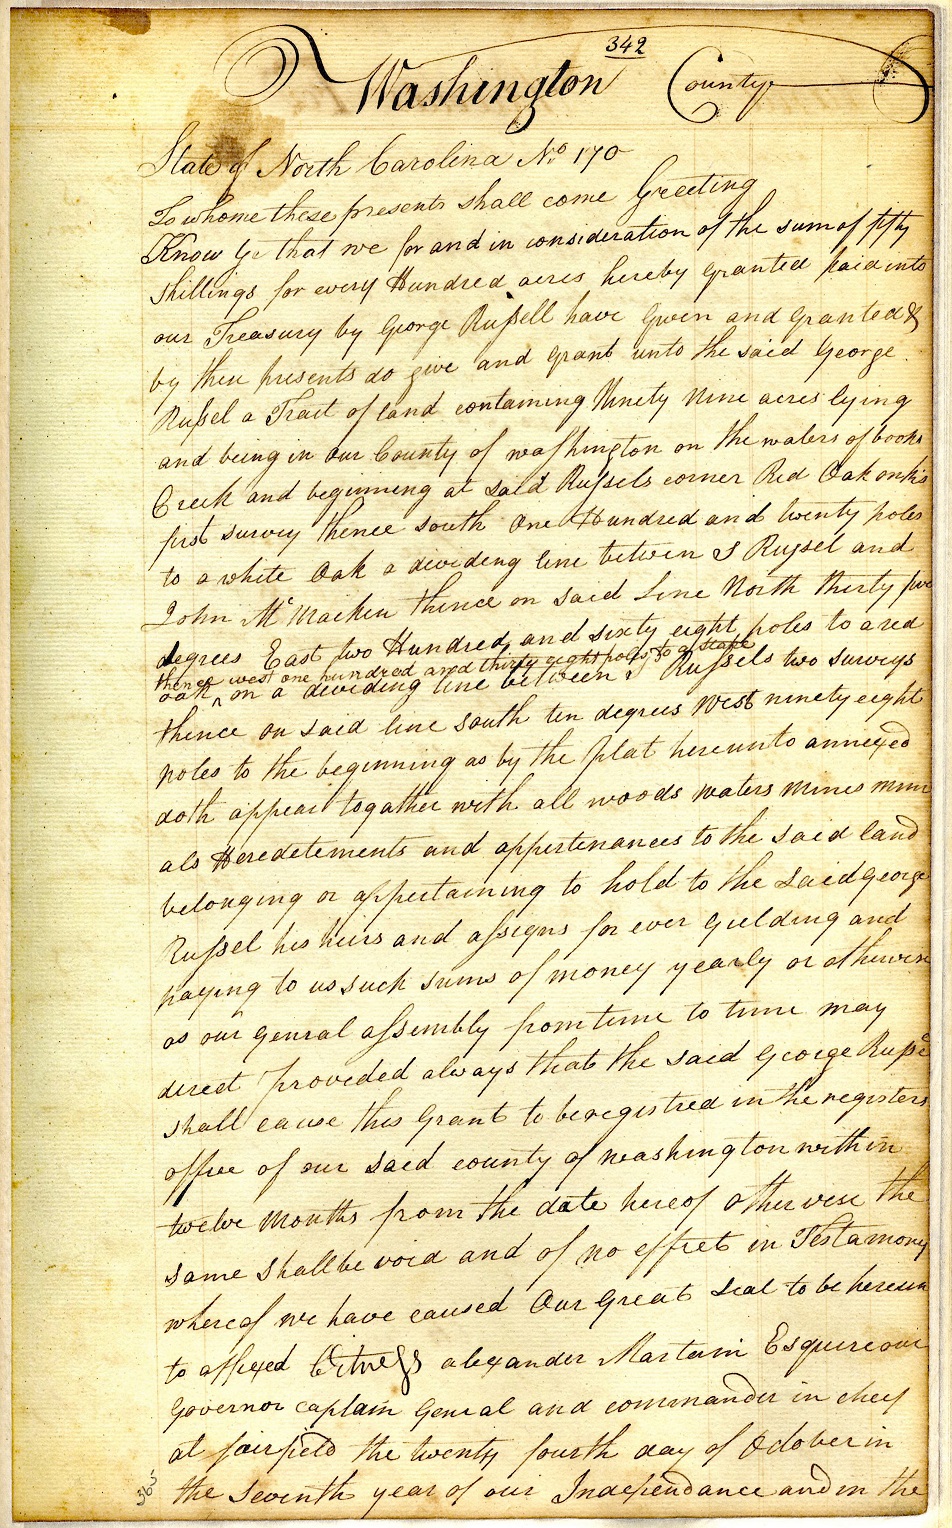 342
Washington County
State of North Carolina No. 170
To whome these presents shall come Greeting
Know Ye that we for and in consideration of the sum of fifty
shillings for every Hundred acres hereby granted paid into
our Treasury by George Russell have Given and Granted &
by thee presents do give and grant unto the said George
Russel a Tract of land containing Ninety Nine acres lying
and being in our County of washington on the waters of
Creek and beginning at said Russels corner Red Oak on his
first survey thence south One Hundred and twenty poles
to a white Oak a dividing line between J Russel and
John thence on said Line North thirty five
degrees East two Hundred and sixty eight poles to a red
thence west one hundred and thirty eight poles to a Stake
oak ^ on a dividing line between J Russels two surveys
thence on said line south ten degrees West ninety eight
poles to the beginning as by the plat hereunto annexed
doth appear togather with all woods waters mines miner
als Heredetements and appertenances to the said land
belonging or appertaining to hold to the said George
Russel his heirs and assigns for ever yielding and
paying to us such sums of money yearly or otherwise
as our genral assembly from time to time may
direct provided always that the said George Russel
shall cause this Grant to be registred in the registers
office of our said county of washington within
twelve Months from the date hereof otherwise the
same shall be void and of no effect in Testamony
whereof we have caused Our Great seal to be hereun
to affixed Witness alexander Martain Esquire our
Governor captain Genral and commander in cheif
at fairfield the twenty fourth day of October in
the Seventh year of our Independance and in the
365